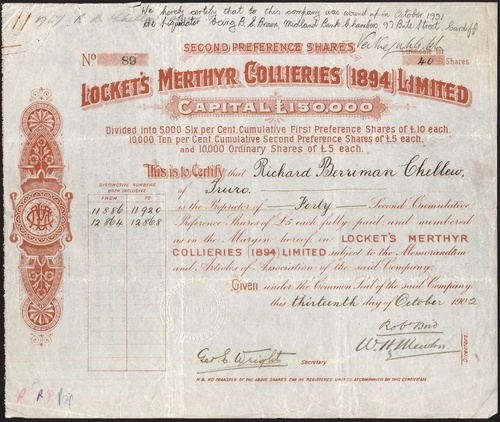 11 1967 R B Chellew
We hereby certify that to this company was wound up in October 1931
the liquidator being B. S. Bevan, Midland Bank Chambers 97 Bute Street, Cardiff
SECOND PREFERENCE SHARES
No 89
40 Shares
LOCKET'S MERTHYR COLLIERIES (1894) LIMITED
CAPITAL £150,000
Divided into 5000 Six per Cent Cumulative First Preference Shares of £10 each.
10,000 Ten per Cent Cumulative Second Preference Shares of £5 each,
and 10,000 Ordinary Shares of £5 each.
This is to Certify that Richard Berriman Chellew,
of Truro.
is the Proprietor of Forty Second Cumulative
Preference Shares of £5 each fully paid and numbered
as in the Margin hereof in LOCKET'S MERTHYR
COLLIERIES (1894) LIMITED subject to the Memorandum
and Articles of Association of the said Company.
Given under the Common Seal of the said Company
this thirteenth day of October 1902
DISTINCTIVE NUMBERS
BOTH INCLUSIVE
FROM TO
11886 11920
12864 12868
Geo E. Wright Secretary
Directors
N.B. NO TRANSFER OF THE ABOVE SHARES CAN BE REGISTERED UNLESS ACCOMPANIED BY THIS CERTIFICATE.